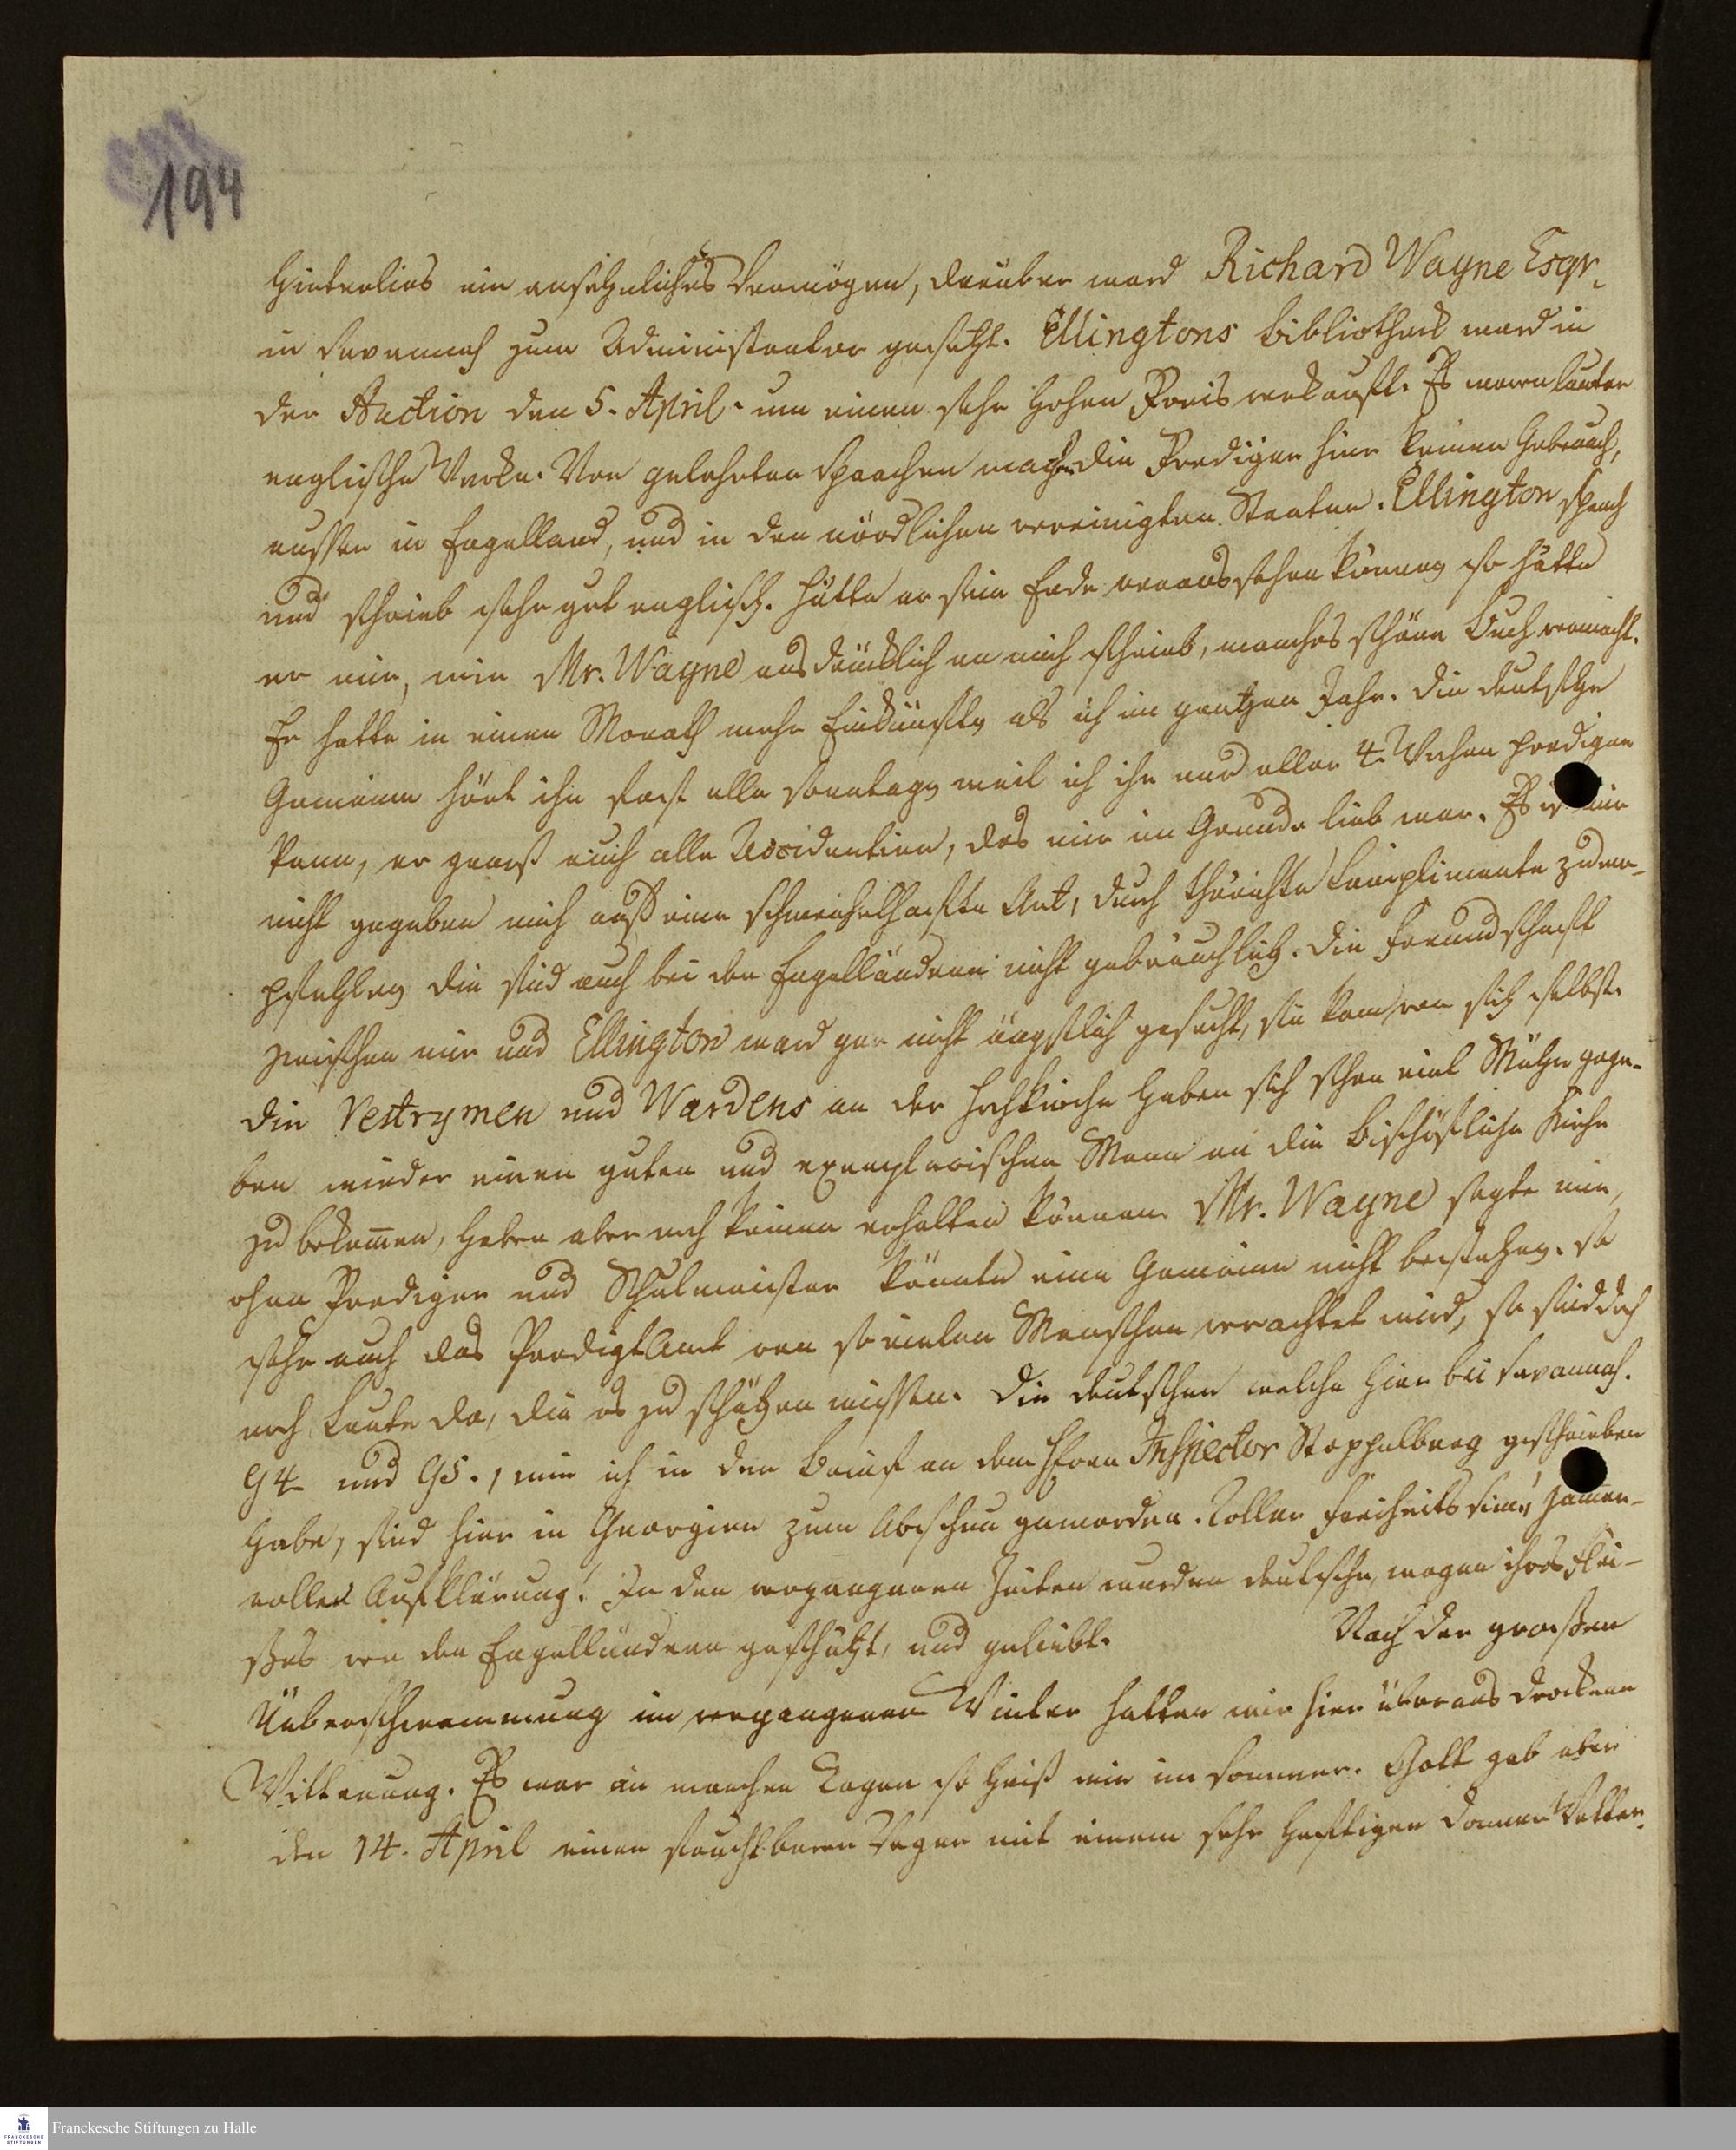 194
hinterlies ein ansehnliches Vermögen, darüber ward Richard Wayne Esqr.
in Savannah zum Administrator gesetzt. Ellingtons Bibliotheck ward in
der Auction den 5. April. um einen sehr hohen Preis verkauft. Es waren lauter
englische Werke. Von gelehrten Sprachen machen die Prediger hier keinen Gebrauch,
ausser in Engelland, und in den nördlichen vereinigten Staaten. Ellington sprach
und schrieb sehr gut englisch. Hätte er sein Ende voraus sehen können so hätte
er mir, wie Mr. Wayne ausdrücklich an mich schrieb, manches schöne Buch vermacht.
Er hatte in einen Monath mehr Einkünfte, als ich im gantzen Jahr. Die deutsche
Gemeine hört ihn fast alle Sontage, weil ich ihr nur aller 4. Wochen predigen
kann, er genoß auch alle Accidentien, das mir im Grunde lieb war. Es ist mir
nicht gegeben mich auf eine schmeichelhafte Art, durch thörichte Complimente zu em-
pfehlen, die sind auch bei den Engelländern nicht gebräuchlich. Die Freundschaft
zwischen mir und Ellington ward gar nicht ängstlich gesucht, sie kam von sich selbst.
Die Vestrymen und Wardens an der Hochkirche haben sich schon viel Mühe gege-
ben wieder einen guten und exemplarischen Mann an die Bischöfliche Kirche
zu bekommen, haben aber noch keinen erhalten können. Mr. Wayne sagte mir,
ohne Prediger und Schulmeister könnte eine Gemeine nicht bestehen. So
sehr auch das PredigtAmt von so vielen Menschen verachtet wird, so sind doch
noch Leute da, die es zu schätzen wissen. Die deutschen welche hier bei Savannah.
94 und 95., wie ich in den Brief an dem Herrn Inspector Stoppelberg geschrieben
habe, sind hier in Georgien zum Abscheu geworden. Toller Freiheits sinn, jammer-
voller Aufklärung! In den vergangenen Zeiten wurden deutsche, wegen ihres Flei-
ßes von den Engelländern geschätzt, und geliebt. Nach der großen
Überschwemmung im vergangenen Winter hatten wir hier überaus drockene
Witterung. Es war an manchen Tagen so heiß wie im Sommer. Gott gab aber
den 14. April einen fruchtbaren Regen mit einem sehr heftigen Donner Wetter.
Franckesche Stiftungen zu Halle